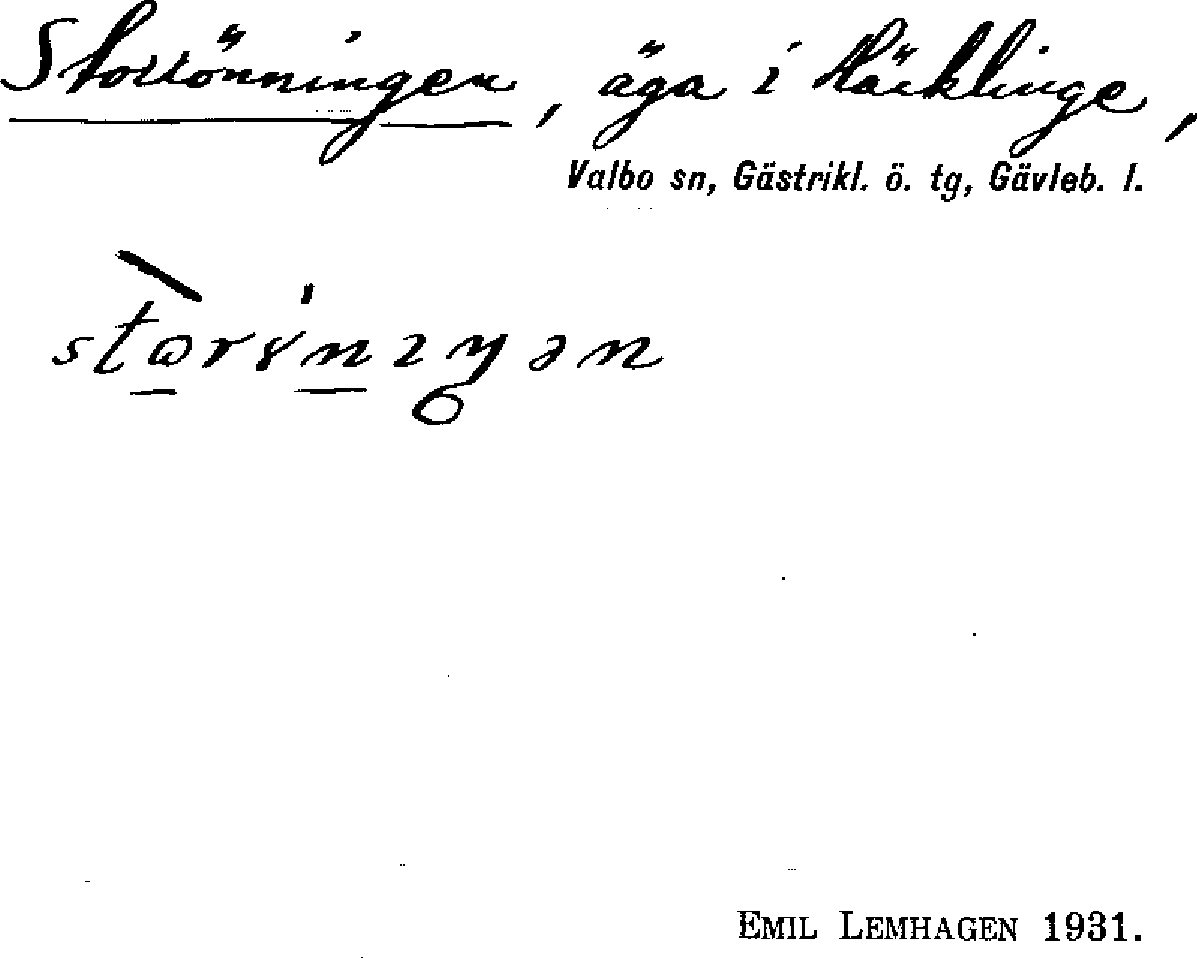 Storrönningen, äga i Häcklinge,
Valbo sn, Gästrikl. ö. tg, Gävleb. l.
EMIL LEMHAGEN 1931.